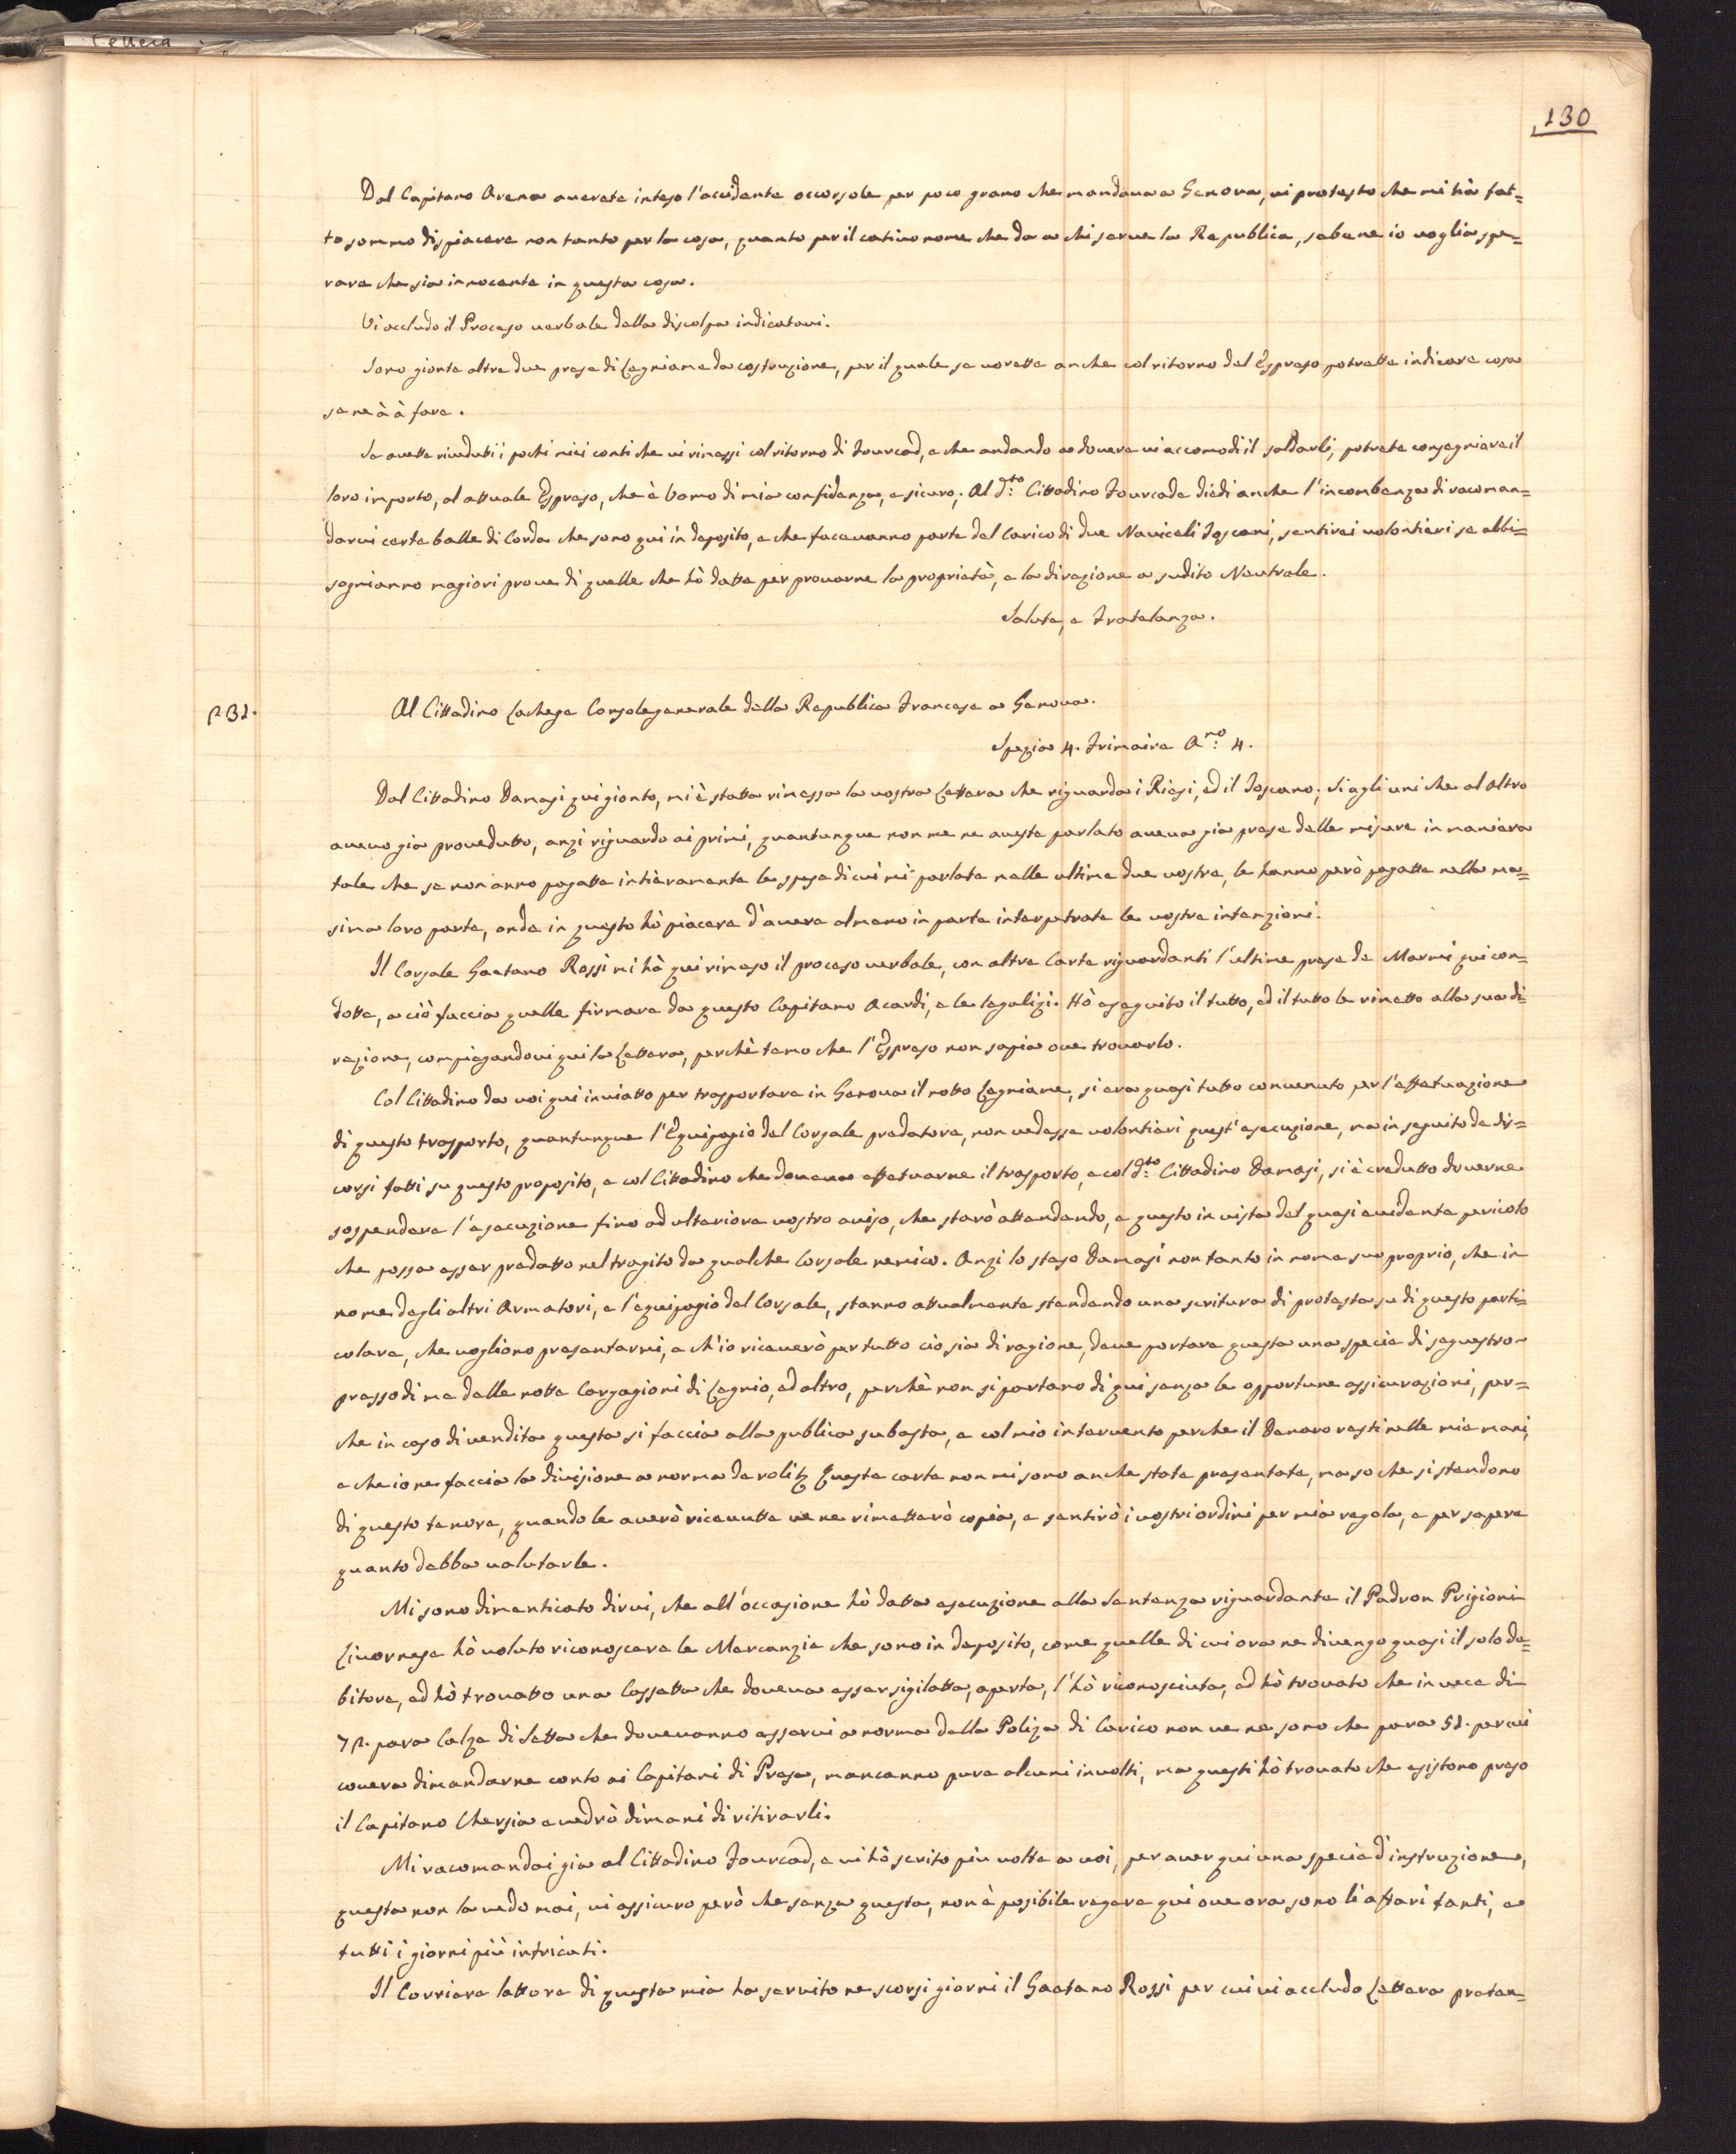 130
Dal Capitano Arena averete inteso l'accidente occorsole per poco grano che mandava a Genova, vi protesto che mi hà fat=
to sommo dispiacere non tanto per la cosa, quanto per il cativo nome che da a chi serve la Republica, sebene io voglia spe=
rare che sia innocente in questa cosa.
Vi accludo il Proceso verbale della discolpa indicatavi.
Sono gionte altre due prese di Legniame da costruzione, per il quale se vorette anche col ritorno del Espreso potrette indicare cosa
se ne à à fare.
Se avette riveduti i pochi miei conti che vi rimessi col ritorno di Fourcad, e che andando a dovere vi accomodi il saldarli, potrete consegniare il
loro importo, al attuale Espreso, che è Uomo di mia confidenza, e sicuro; Al d.to Cittadino Fourcade diedi anche l'incombenza di racoman=
darvi certe balle di Corda che sono qui in deposito, e che facevanno parte del Carico di due Navicelli Toscani, sentirei volontieri se abbi=
sognianno magiori prove di quelle che hò datte per provarne la proprietà, e la direzione a sudito Neutrale.
Salute, e Fratelanza.
231.
Al Cittadino Lachese Consolegenerale della Republica Francese a Genova.
Spezia 4. Frimaire A.no 4.
Dal Cittadino Damasi qui gionto, mi è statta rimessa la vostra Lettera che riguarda i Riesi, ed il Toscano; Si agli uni che al altro
avevo gia provedutto, anzi riguardo ai primi, quantunque non me ne aveste parlato aveva gia prese delle misure in maniera
tale che se non anno pagatte intieramente le spese di cui mi parlate nelle ultime due vostre, le hanno però pagatte nella ma=
sima loro parte, onde in questo hò piacere d'avere almeno in parte interpetrate le vostre intenzioni.
Il Corsale Gaetano Rossi mi hà qui rimeso il proceso verbale, con altre Carte riguardanti l'ultime prese de Marmi qui con=
dotte, a ciò faccia quelle firmare da questo Capitano Acardi, e le legalizi. Hò eseguito il tutto, ed il tutto le rimetto alla sua di=
rezione, compiegandovi qui la Lettera, perchè temo che l'Espreso non sapia ove trovarlo.
Col Cittadino da voi qui inviatto per trasportare in Genova il notto Legniame, si era quasi tutto convenuto per l'effetuazione
di questo trasporto, quantunque l'Equipagio del Corsale predatore, non vedesse volontieri quest'esecuzione, ma in seguito de dis=
corsi fatti su questo proposito, e col Cittadino che doveva effetuarne il trasporto, e col d.to Cittadino Damasi, si è credutto doverne
sospendere l'esecuzione fino ad ulteriore vostro aviso, che starò attendando, e questo in vista del quasi evidente pericolo
che possa esser predatto nel tragito da qualche Corsale nemico. Anzi lo steso Damasi non tanto in nome suo proprio, che in
nome degli altri Armatori, e l'equipagio del Corsale, stanno attualmente stendendo una scritura di protesta su di questo parti=
colare, che vogliono presentarmi, e ch'io riceverò per tutto ciò sia di ragione, deve portare questa una specie di sequestro
presso di me delle notte Cargagioni di Legnio, ed altro, perchè non si portano di qui senza le opportune assicurazioni, per=
che in caso di vendita questa si faccia alla publica subasta, e col mio intervento perche il Denaro resti nelle mie mani,
e che io ne faccia la divisione a norma de Queste carte non mi sono anche state presentate, ma so che si stendono
di questo tenore, quando le averò ricevutte ve ne rimetterò copia, e sentirò i vostri ordini per mia regola, e per sapere
quanto debba valutarle.
Mi sono dimenticato dirvi, che all'occasione hò datta esecuzione alla Sentenza riguardante il Padron Prigioni
Livornese hò voluto riconoscere le Mercanzie che sono in deposito, come quelle di cui ora ne divengo quasi il solo de=
bitore, ed hò trovatto una Cassetta che doveva esser sigilatta, aperta, l'hò riconosciuta, ed hò trovato che in vece di
72. para Calze di Setta che dovevanno esservi a norma della Poliza di Carico non ve ne sono che para 51. per cui
convera dimandarne conto ai Capitani di Presa, mancanno pure alcuni involti, ma questi hò trovato che esistono preso
il Capitano Chersia e vedrò dimani di ritirarli.
Mi racomandai gia al Cittadino Fourcad, e vi hò scrito più volte a voi, per aver qui una specie d'instruzione,
questa non la vedo mai, vi assicuro però che senza questa, non è posibile regere qui ove ora sono li affari tanti, e
tutti i giorni più intricati.
Il Corriere lattore di questa mia ha servito ne scorsi giorni il Gaetano Rossi per cui vi accludo Lettera preten=